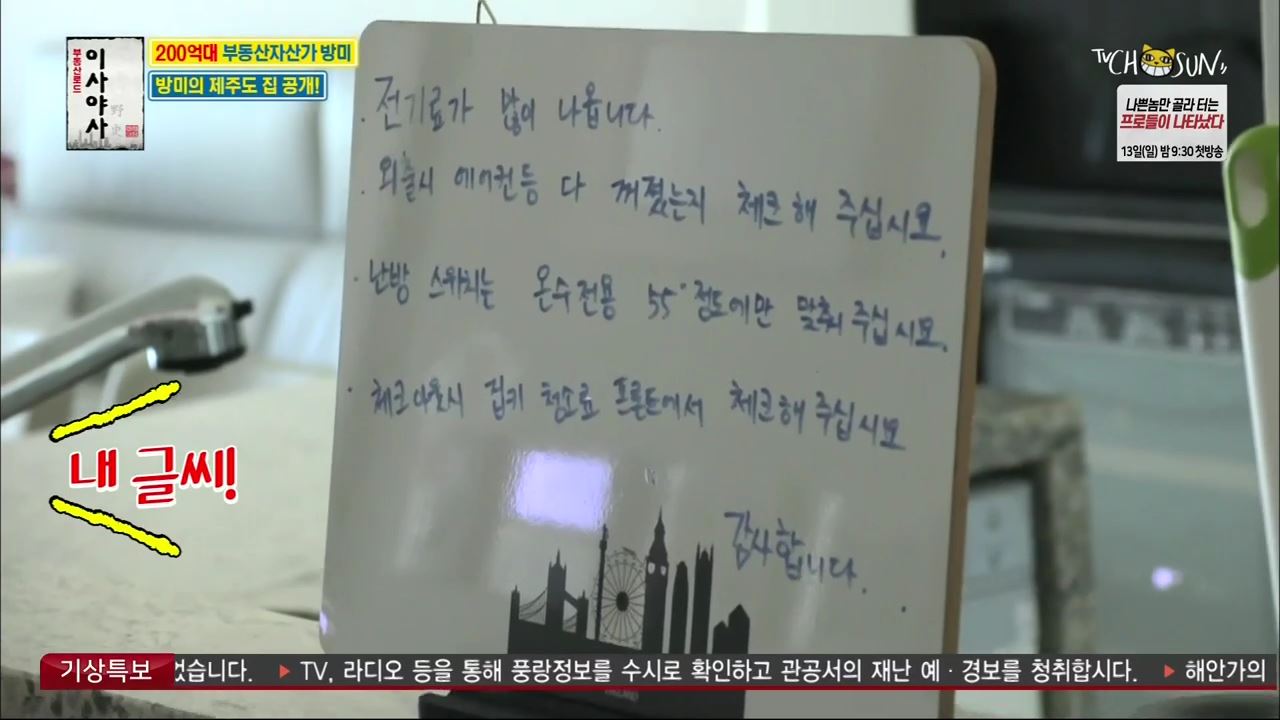 부동산로드
이사야사
野史
200억대 부동산자산가 방미
방미의 제주도 집 공개!
TV CHOSUN
나쁜놈만 골라 터는
프로들이 나타났다
13일(일) 밤 9:30 첫방송
· 전기료가 많이 나옵니다.
· 외출시 에어컨등 다 꺼졌는지 체크해 주십시요.
· 난방 스위치는 온수전용 55° 정도에만 맞춰 주십시요.
· 체크아웃시 집키 청소료 프론트에서 체크해 주십시요
감사합니다.
내 글씨!
기상특보
었습니다. ▶ TV, 라디오 등을 통해 풍랑정보를 수시로 확인하고 관공서의 재난 예·경보를 청취합시다. ▶ 해안가의